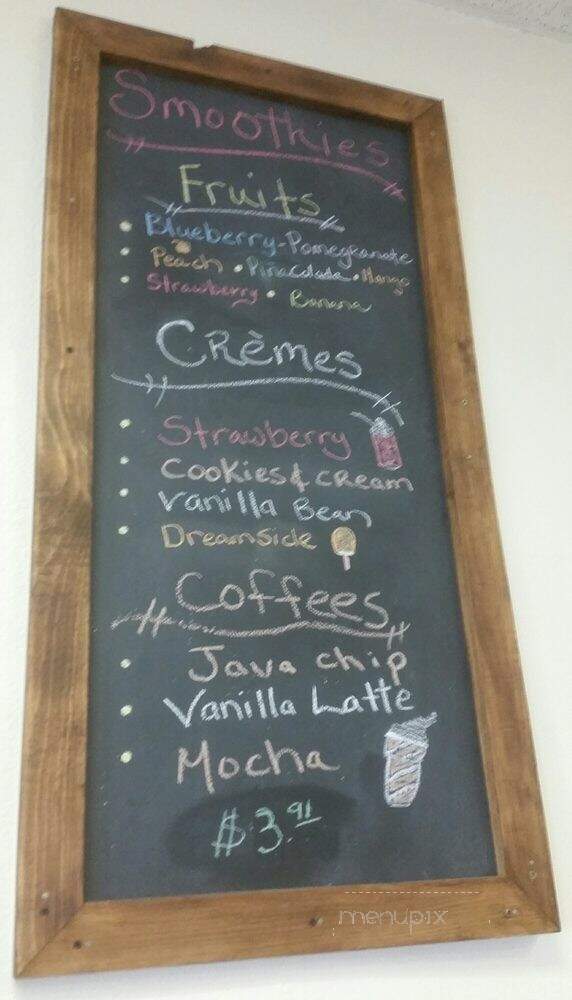 Smoothies
Fruits
Blueberry-Pomegranate
Peach • Pinacolada • Mango
Strawberry • Banana
Crèmes
Strawberry
Cookies & Cream
Vanilla Bean
Dreamsicle
Coffees
Java chip
Vanilla Latte
Mocha
$3.91
menupix